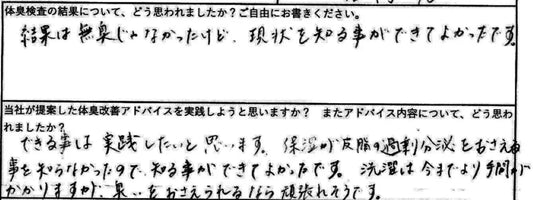 体臭検査の結果について、どう思われましたか？ご自由にお書きください。
結果は無臭じゃなかったけど、現状を知る事ができてよかったです。
当社が提案した体臭改善アドバイスを実践しようと思いますか？　またアドバイス内容について、どう思わ
れましたか？
できる事は実践したいと思います。保湿が皮脂の過剰分泌をおさえる
事を知らなかったので、知る事ができてよかったです。洗濯は今までより手間が
かかりますが、臭いをおさえられるなら頑張れそうです。